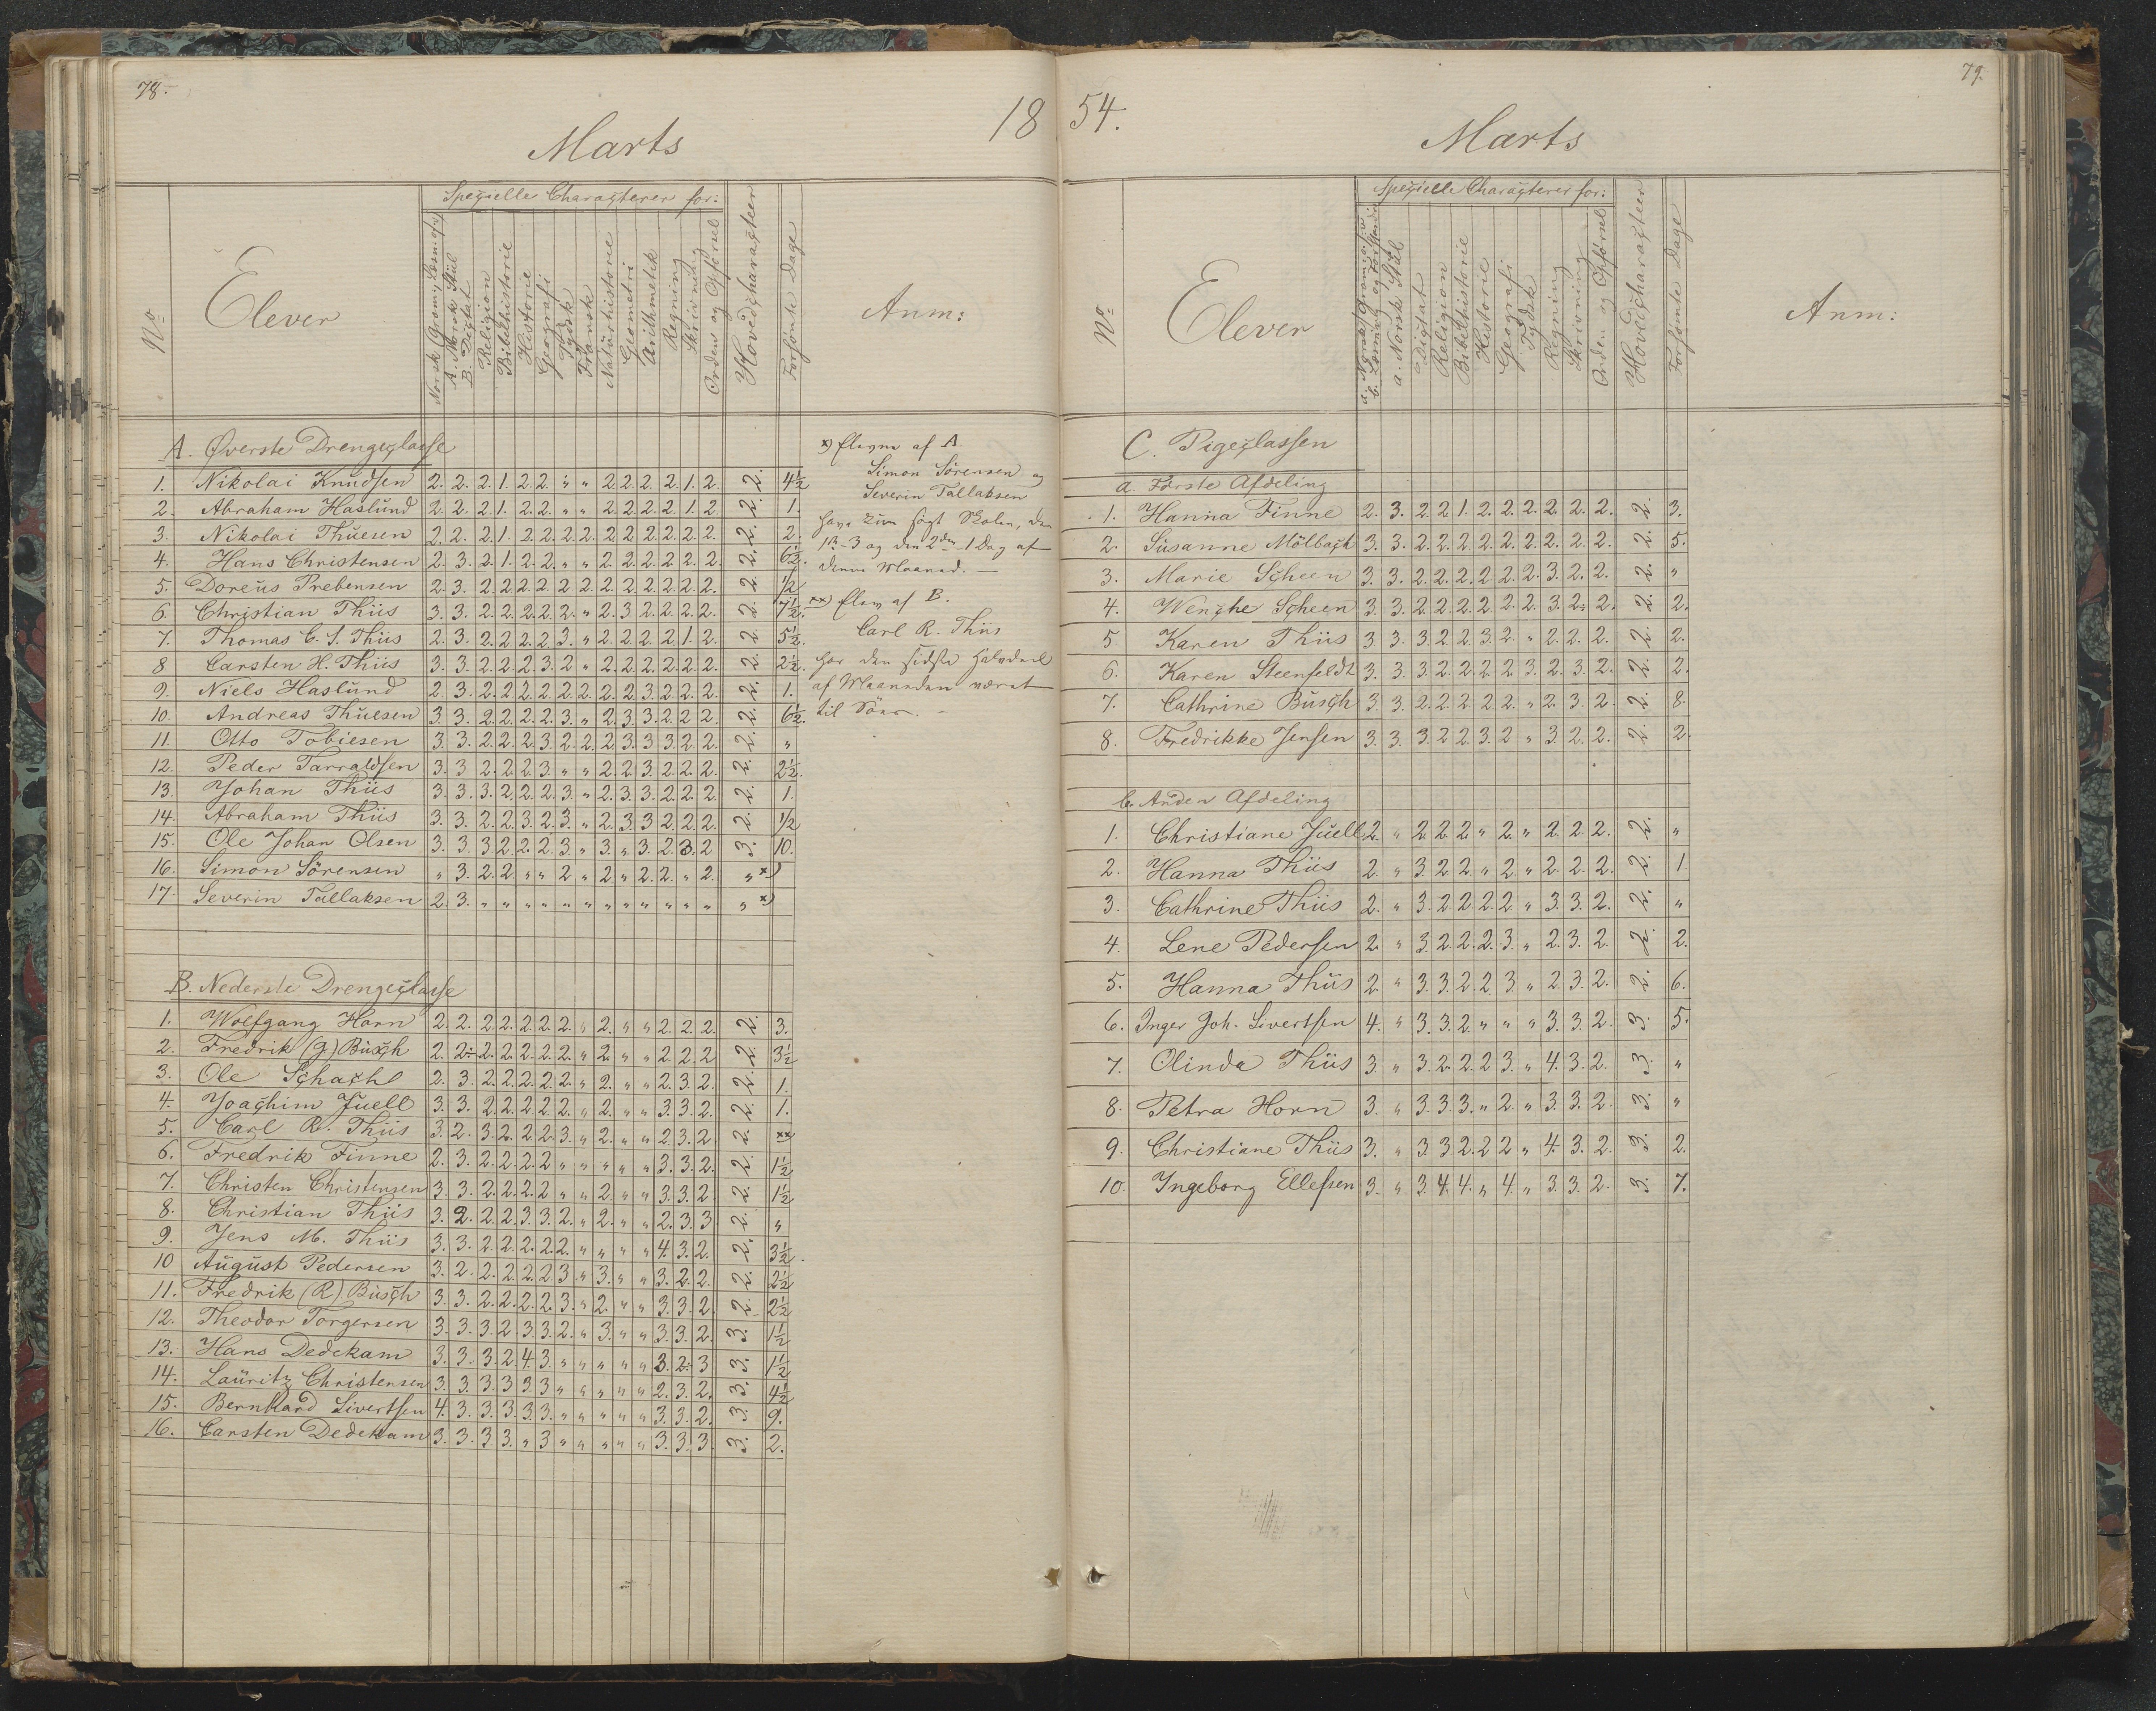 78.
18
Marts
Specielle Characterer for:
No
Elever
Norsk Gram., Læsn. o.s.v.
A. Norsk Stiil
B. Dictat
Religion
Bibelhistorie
Historie
Geografi
Tydsk
Fransk
Naturhistorie
Geometri
Arithmetik
Regning
Skrivning
Orden og Opførsel
Hovedcharacteer
Forsømte Dage
Anm:
A. Øverste Drengeclasse
1. Nikolai Knudsen 2. 2. 2. 1. 2. 2. " " 2. 2. 2. 2. 1. 2. 2. 4½
2. Abraham Haslund 2. 2. 2. 1. 2. 2. " " 2. 2. 2. 2. 1. 2. 2. 1.
3. Nikolai Thuesen 2. 2. 2. 1. 2. 2. 2. 2. 2. 2. 2. 2. 2. 2. 2. 2.
4. Hans Christensen 2. 3. 2. 1. 2. 2. " " 2. 2. 2. 2. 2. 2. 2. 6½.
5. Doreus Prebensen 2. 3. 2. 2. 2. 2. 2. 2. 2. 2. 2. 2. 2. 2. 2. ½
6. Christian Thiis 3. 3. 2. 2. 2. 2. 2. " 2. 3. 2. 2. 2. 2. 2. 7½.
7. Thomas C. S. Thiis 2. 3. 2. 2. 2. 2. 3. " 2. 2. 2. 2. 1. 2. 2. 5½.
8. Carsten H. Thiis 3. 3. 2. 2. 2. 3. 2. " 2. 2. 2. 2. 2. 2. 2. 2½.
9. Niels Haslund 2. 3. 2. 2. 2. 2. 2. 2. 2. 2. 3. 2. 2. 2. 2. 1.
10. Andreas Thuesen 3. 3. 2. 2. 2. 2. 3. " 2. 3. 3. 2. 2. 2. 2. 6½.
11. Otto Tobiesen 3. 3. 2. 2. 2. 3. 2. 2. 2. 3. 3. 3. 2. 2. 2. "
12. Peder Tarraldsen 3. 3. 2. 2. 2. 3. " " 2. 2. 3. 2. 2. 2. 2. 2½.
13. Johan Thiis 3. 3. 3. 2. 2. 2. 3. " 2. 3. 3. 2. 2. 2. 2. 1.
14. Abraham Thiis 3. 3. 2. 2. 3. 2. 3. " 2. 3. 3. 2. 2. 2. 2. ½
15. Ole Johan Olsen 3. 3. 3. 2. 2. 2. 3. " 3. " 3. 2. 3. 2 3. 10.
16. Simon Sørensen " 3. 2. 2. " " 2. " 2. " 2. 2. " 2. " x)
17. Severin Tallaksen 2. 3. " " " " " " " " " " " " " x)
x) Elevne af A.
Simon Sørensen og
Severin Tallaksen
have kun søgt Skolen, den
1ste 3 og den 2den 1 Dag af
denne Maaned. —
xx) Elev af B.
Carl R. Thiis
har den sidste Halvdeel
af Maaneden været
til Søes. —
B. Nederste Drengeclasse
1. Wolfgang Horn 2. 2. 2. 2. 2. 2. 2. " 2. " " 2. 2. 2. 2. 3.
2. Fredrik (G) Busch 2. 2. 2. 2. 2. 2. 2. " 2. " " 2. 2. 2 2. 3½
3. Ole Schacht 2. 3. 2. 2. 2. 2. 2. " 2. " " 2. 3. 2. 2. 1.
4. Joachim Juell 3. 3. 2. 2. 2. 2. 2. " 2. " " 3. 3. 2. 2. 1.
5. Carl R. Thiis 3. 2. 3. 2. 2. 2. 3. " 2. " " 2. 3. 2. 2. xx
6. Fredrik Finne 2. 3. 2. 2. 2. 2 " " " " " 3. 3. 2. 2. 1½
7. Christen Christensen 3. 3. 2. 2. 2. 2 " " 2. " " 3. 3. 2. 2. 1½
8. Christian Thiis 3. 2. 2. 2. 3. 3. 2. " 2. " " 2. 3. 3. 2. "
9. Jens M. Thiis 3. 3. 2. 2. 2. 2. 2. " " " " 4. 3. 2. 2. 3½
10 August Pedersen 3. 2. 2. 2. 2. 2. 3. " 3. " " 3. 2. 2. 2. 2½
11. Fredrik (R) Busch 3. 3. 2. 2. 2. 2. 3. " 2. " " 3. 3. 2. 2. 2½
12. Theodor Torgersen 3. 3. 3. 2. 3. 3. 2. " 3. " " 3. 3. 2. 3. 1½
13. Hans Dedekam 3. 3. 3. 2. 4. 3. " " " " " 3. 2. 3 3. 1½
14. Lauritz Christensen 3. 3. 3. 3 3. 3 " " " " " 2. 3. 2. 3. 4½
15. Bernhard Sivertsen 4. 3. 3. 3. 3. 3. " " " " " 3. 3. 2. 3. 9.
16. Carsten Dedekam 3. 3. 3. 3. " 3 " " " " " 3. 3. 3 3. 2.
79.
54.
Marts
Specielle Characterer for:
No
Elever
a. Norsk Gram. o.s.v.
b. Læsning og Forstandsøv.
a. Norsk Stiil
Dictat
Religion
Bibelhistorie
Historie
Geografi
Tydsk
Regning
Skrivning
Orden og Opførsel
Hovedcharacteer
Forsømte Dage
Anm:
C. Pigeclassen
a. Første Afdeling
1. Hanna Finne 2. 3. 2. 2. 1. 2. 2. 2. 2. 2. 2. 2. 3.
2. Susanne Mölbach 3. 3. 2. 2. 2. 2. 2. 2. 2. 2. 2. 2. 5.
3. Marie Scheen 3. 3. 2. 2. 2. 2. 2. 2. 3. 2. 2. 2. "
4. Wenche Scheen 3. 3. 2. 2. 2. 2. 2. 2. 3. 2. 2. 2. 2.
5. Karen Thiis 3 3. 3. 2 2. 3. 2. " 2. 2. 2. 2. 2.
6. Karen Steenfeldt 3. 3. 3. 2. 2. 2. 2 3. 2. 3. 2. 2. 2.
7. Cathrine Busch 3. 3. 2. 2. 2. 2. 2. " 2. 3. 2. 2. 8.
8. Fredrikke Jensen 3. 3. 3. 2 2. 3. 2 " 3. 2. 2. 2. 2.
b. Anden Afdeling
1. Christiane Juell 2. " 2. 2. 2. " 2. " 2. 2. 2. 2. "
2. Hanna Thiis 2. " 3. 2. 2. " 2. " 2. 2. 2. 2. 1
3. Cathrine Thiis 2. " 3. 2. 2. 2. 2. " 3. 3. 2. 2. "
4. Lene Pedersen 2. " 3. 2. 2. 2. 3. " 2. 3. 2. 2. 2.
5. Hanna Thiis 2. " 3. 3. 2. 2. 3. " 2. 3. 2. 2. 6.
6. Inger Joh. Sivertsen 4. " 3. 3. 2. " " " 3. 3. 2. 3. 5.
7. Olinda Thiis 3. " 3. 2. 2. 2. 3. " 4. 3. 2. 3. "
8. Petra Horn 3. " 3. 3. 3. " 2. " 3. 3. 2. 3. "
9. Christiane Thiis 3. " 3. 3 2. 2. 2 " 4. 3. 2. 3. 2.
10. Ingeborg Ellefsen 3. " 3. 4. 4. " 4. " 3. 3. 2. 3. 7.